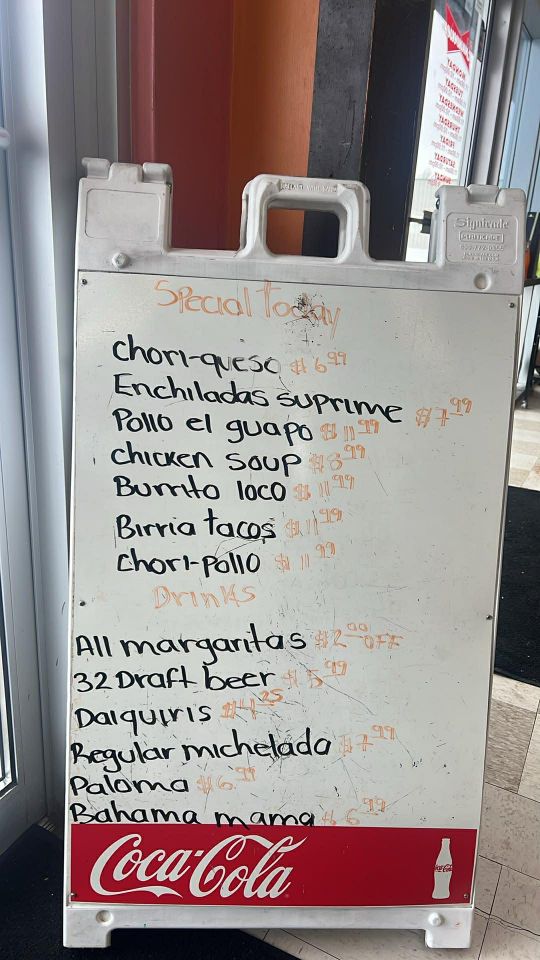 Special today
chori-queso $6.99
Enchiladas suprime $7.99
Pollo el guapo $11.99
chicken soup $8.99
Burrito loco $11.99
Birria tacos $11.99
chori-pollo $11.99
Drinks
All margaritas $2.00 OFF
32 Draft beer $5.99
Daiquiris $4.25
Regular michelada $7.99
Paloma $6.99
Bahama mama $6.99
Coca-Cola
Signicade
MONDAY
TUESDAY
WEDNESDAY
THURSDAY
FRIDAY
SATURDAY
SUNDAY